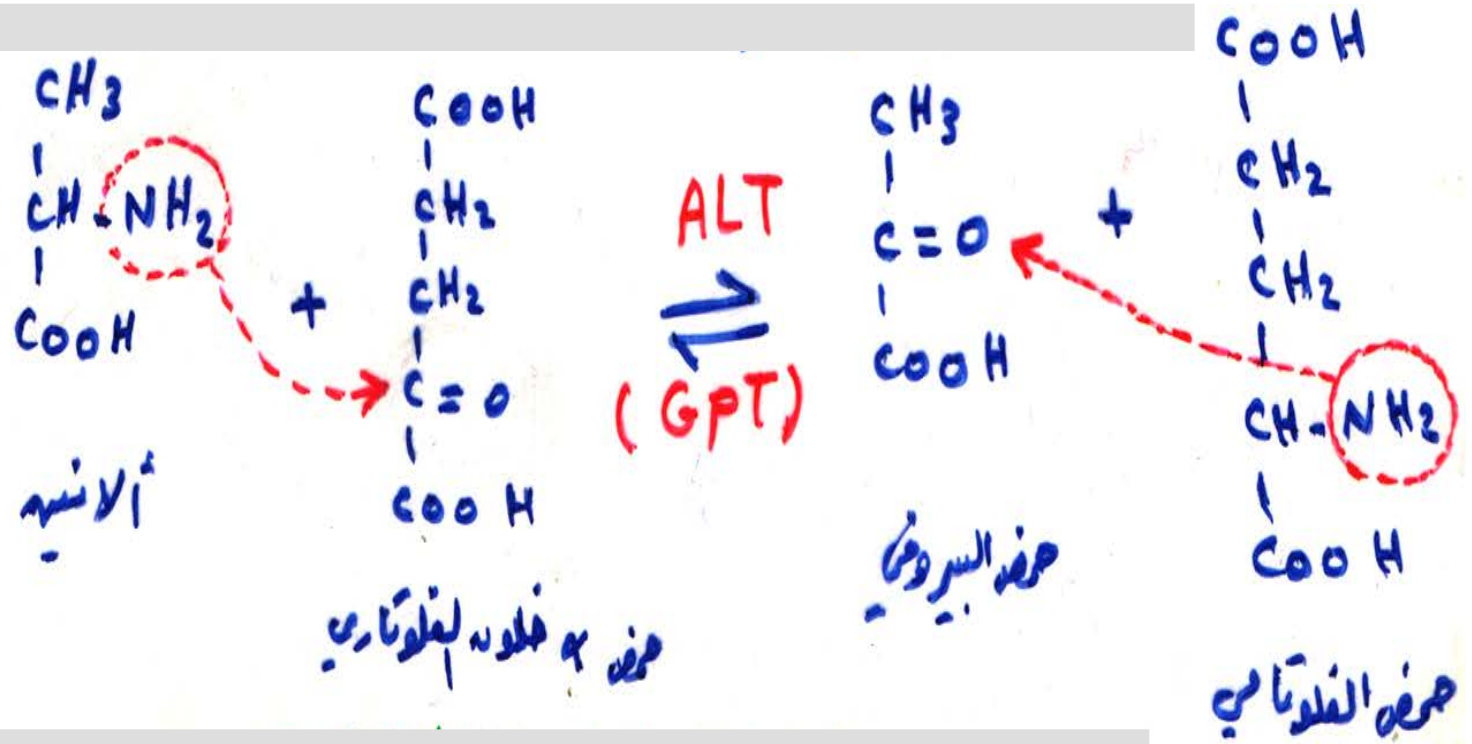 CH3
CH-NH2
COOH
ألانين
+
COOH
CH2
CH2
C=O
COOH
حمض α خلون الغلوتاري
ALT
⇌
(GPT)
CH3
C=O
COOH
حمض البيروفي
+
COOH
CH2
CH2
CH-NH2
COOH
حمض الغلوتامي